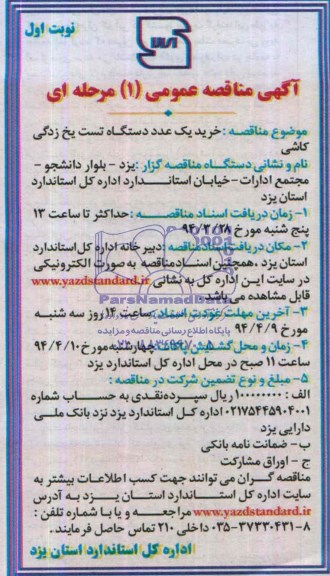 نوبت اول
آگهی مناقصه عمومی (۱) مرحله ای
موضوع مناقصه : خرید یک عدد دستگاه تست یخ زدگی
کاشی
نام و نشانی دستگاه مناقصه گزار : یزد - بلوار دانشجو -
مجتمع ادارات - خیابان استاندارد اداره کل استاندارد
استان یزد
۱- زمان دریافت اسناد مناقصه : حداکثر تا ساعت ۱۳
پنج شنبه مورخ ۹۴/۳/۲۸
۲- مکان دریافت اسناد مناقصه : دبیرخانه اداره کل استاندارد
استان یزد ، همچنین اسناد مناقصه به صورت الکترونیکی
در سایت این اداره کل به نشانی www.yazdstandard.ir
قابل مشاهده می باشد.
ParsNamadData
پایگاه اطلاع رسانی مناقصه و مزایده
۳- آخرین مهلت عودت اسناد : ساعت ۱۴ روز سه شنبه
مورخ ۹۴/۴/۹
۴- زمان و محل گشایش پاکات : چهارشنبه مورخ ۹۴/۴/۱۰
ساعت ۱۱ صبح در محل اداره کل استاندارد یزد
۵- مبلغ و نوع تضمین شرکت در مناقصه :
الف - ۱۰۰۰۰۰۰۰ ریال سپرده نقدی به حساب شماره
۰۲۱۷۵۴۴۵۹۰۴۰۰۱ اداره کل استاندارد یزد نزد بانک ملی
دارایی یزد
ب- ضمانت نامه بانکی
ج - اوراق مشارکت
مناقصه گران می توانند جهت کسب اطلاعات بیشتر به
سایت اداره کل استاندارد استان یزد به آدرس
www.yazdstandard.ir مراجعه و یا با شماره تلفن :
۰۳۵-۳۷۳۳۰۴۳۱-۸ داخلی ۲۱۰ تماس حاصل فرمایند.
اداره کل استاندارد استان یزد